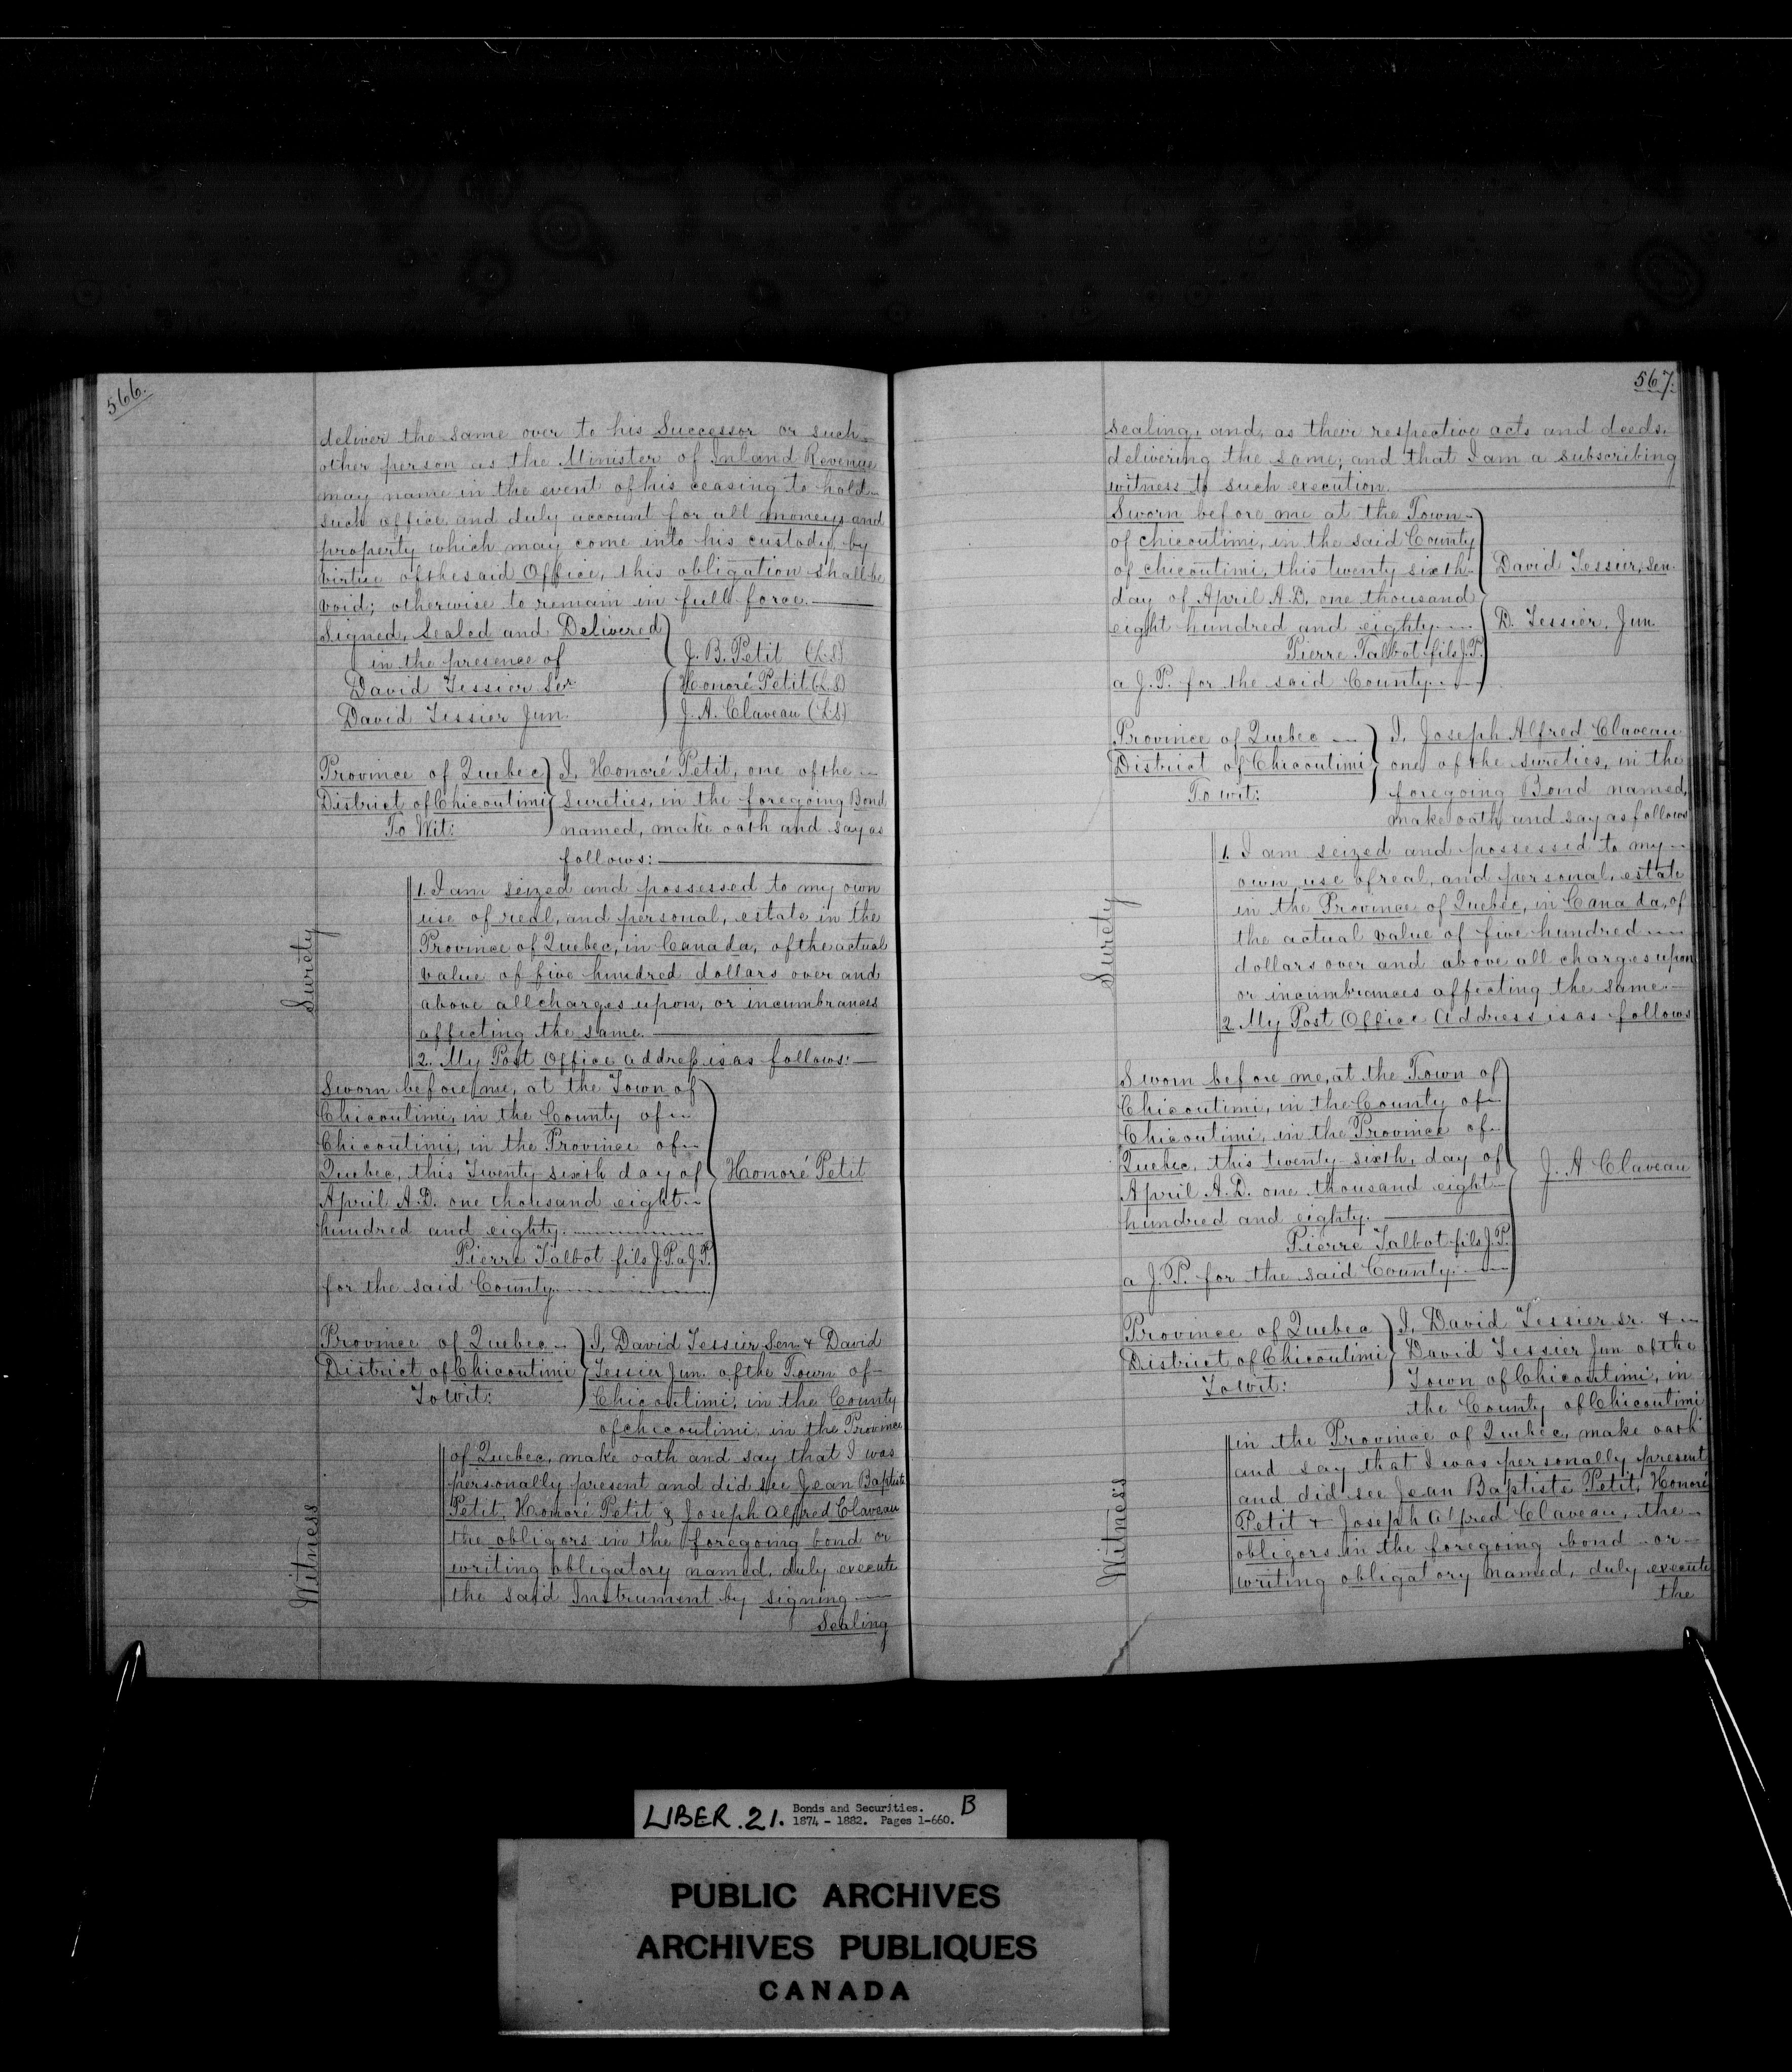 566.
deliver the same over to his Successor or such
other person as the Minister of Inland Revenue
may name in the event of his ceasing to hold
such office and duly account for all moneys and
property which may come into his custody by
virtue of the said Office, this obligation shall be
void; otherwise to remain in full force.
Signed, Sealed and Delivered
in the presence of
J. B. Petit (L.S)
David Tessier Ser.
Honoré Petit (L.S)
David Tessier Jun.
J. A. Claveau (L.S)
Province of Quebec
District of Chicoutimi
To Wit:
I, Honoré Petit, one of the
Sureties, in the foregoing Bond
named, make oath and say as
follows:
Surety
1. I am seized and possessed to my own
use of real, and personal, estate in the
Province of Quebec, in Canada, of the actual
value of five hundred dollars over and
above all charges upon, or incumbrances
affecting the same.
2. My Post Office address is as follows:
Sworn before me, at the Town of
Chicoutimi, in the County of
Chicoutimi, in the Province of
Quebec, this Twenty sixth day of
April A.D. one thousand eight
hundred and eighty.
Pierre Talbot fils J.P. a J.P.
for the said County.
Honoré Petit
Province of Quebec
District of Chicoutimi
To Wit:
I, David Tessier Sen. & David
Tessier Jun. of the Town of
Chicoutimi, in the County
of chicoutimi, in the Province
Witness
of Quebec, make oath and say that I was
personally present and did see Jean Baptiste
Petit, Honoré Petit & Joseph Alfred Claveau
the obligors in the foregoing bond or
writing obligatory named, duly execute
the said Instrument by signing
Sealing
567.
sealing, and, as their respective acts and deeds,
delivering the same; and that I am a subscribing
witness to such execution.
Sworn before me at the Town
of chicoutimi, in the said County
of chicoutimi, this twenty sixth
day of April A.D. one thousand
eight hundred and eighty.
Pierre Talbot fils J.P.
a J.P. for the said County.
David Tessier, Sen.
D. Tessier, Jun.
Province of Quebec
District of Chicoutimi
To wit:
I, Joseph Alfred Claveau
one of the sureties, in the
foregoing Bond named,
make oath and say as follows
Surety
1. I am seized and possessed to my
own use of real, and personal, estate
in the Province of Quebec, in Canada, of
the actual value of five hundred
dollars over and above all charges upon
or incumbrances affecting the same.
2. My Post Office Address is as follows
Sworn before me, at the Town of
Chicoutimi, in the County of
Chicoutimi, in the Province of
Quebec, this twenty sixth, day of
April A.D. one thousand eight
hundred and eighty.
Pierre Talbot fils J.P.
a J.P. for the said County.
J. A Claveau
Province of Quebec
District of Chicoutimi
To wit:
I, David Tessier Sr. &
David Tessier Jun of the
Town of Chicoutimi, in
the County of Chicoutimi
Witness
in the Province of Quebec, make oath
and say that I was personally present
and did see Jean Baptiste Petit, Honoré
Petit & Joseph Alfred Claveau, the
obligors in the foregoing bond or
writing obligatory named, duly execute
the
LIBER. 21. Bonds and Securities. B
1874 - 1882. Pages 1-660.
PUBLIC ARCHIVES
ARCHIVES PUBLIQUES
CANADA